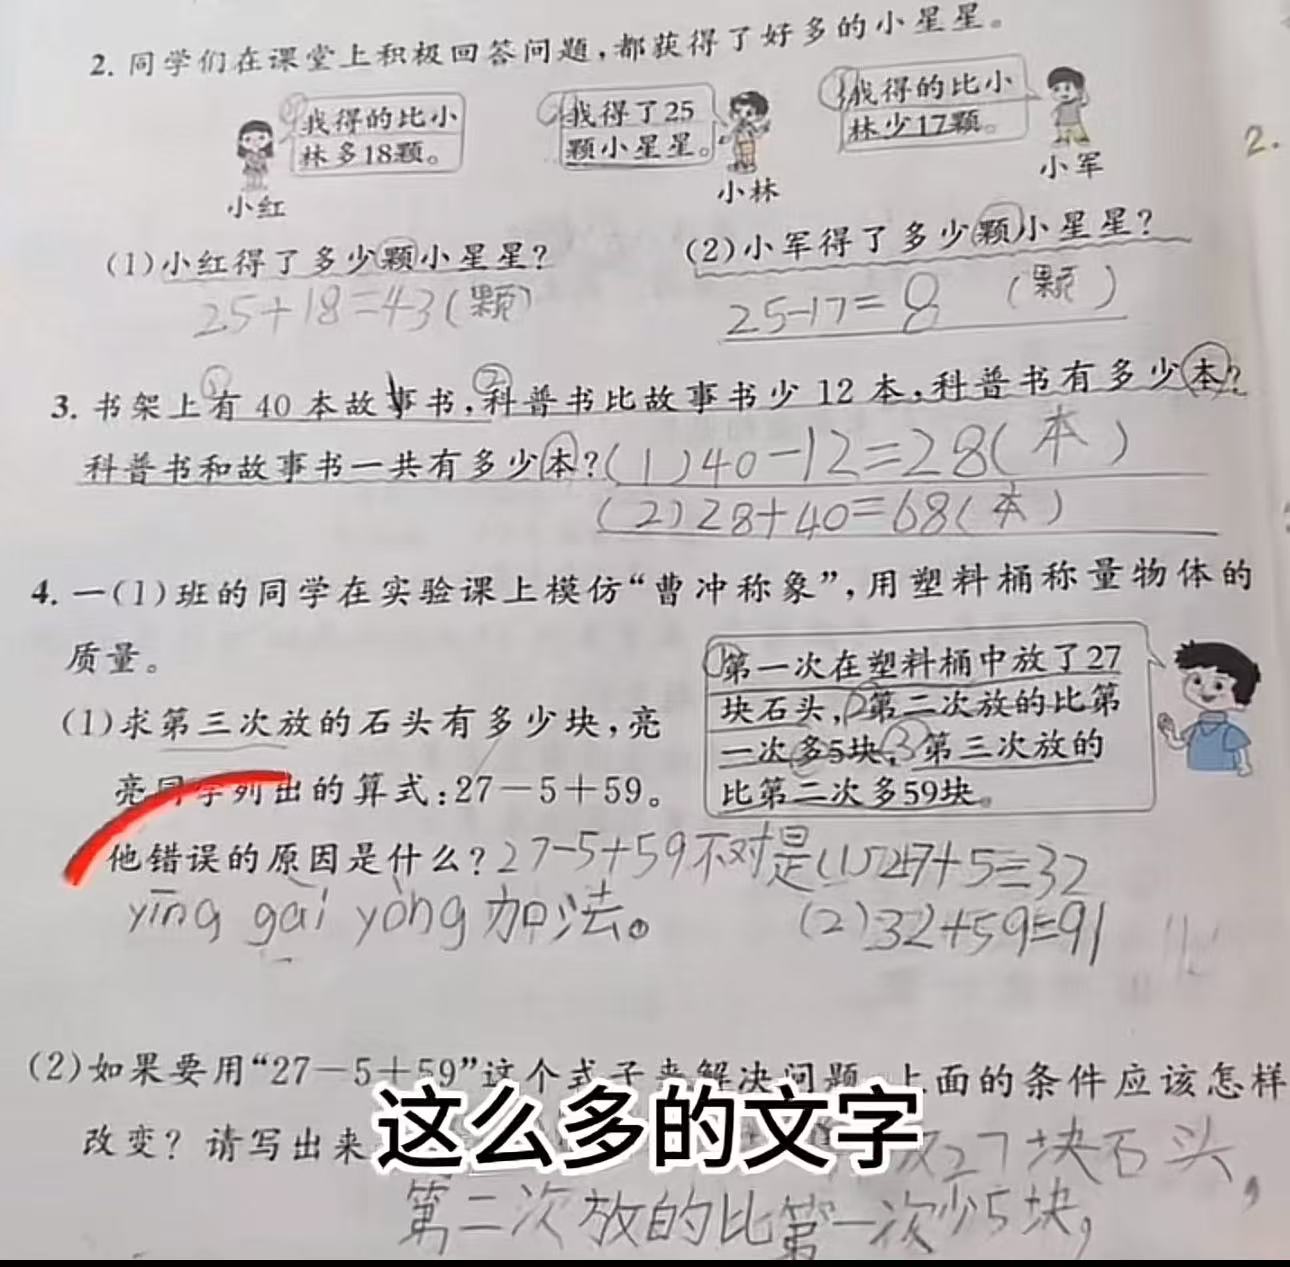 2. 同学们在课堂上积极回答问题，都获得了好多的小星星。
我得的比小
林多18颗。
小红
我得了25
颗小星星。
小林
我得的比小
林少17颗。
小军
(1)小红得了多少颗小星星？
25+18=43(颗)
(2)小军得了多少颗小星星？
25-17=8 (颗)
3. 书架上有 40 本故事书，科普书比故事书少 12 本，科普书有多少本？
科普书和故事书一共有多少本？(1)40-12=28(本)
(2)28+40=68(本)
4. 一(1)班的同学在实验课上模仿“曹冲称象”，用塑料桶称量物体的
质量。
(1)求第三次放的石头有多少块，亮
亮同学列出的算式：27－5＋59。
他错误的原因是什么？27-5+59不对是(1)27+5=32
yīng gāi yòng 加法。
(2)32+59=91
①第一次在塑料桶中放了27
块石头，②第二次放的比第
一次多5块，③第三次放的
比第二次多59块。
(2)如果要用“27－5＋59”这个式子来解决问题 上面的条件应该怎样
改变？请写出来
27块石头，
第二次放的比第一次少5块，
这么多的文字